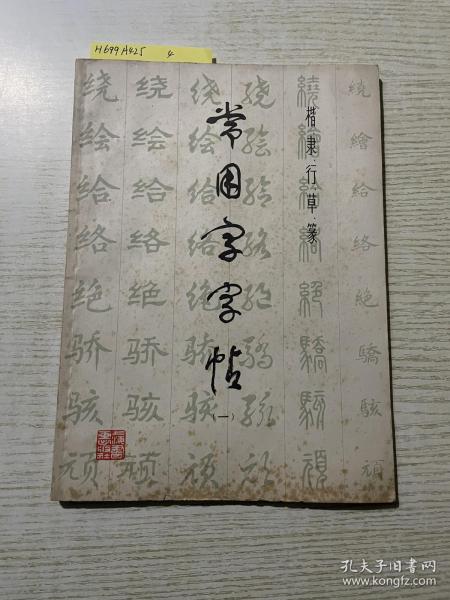 H699A425 4
楷.隶.行.草.篆
常用字字帖
(一)
绕 绕 绕 绕 繞 繞
绘 绘 绘 绘 繪 繪
给 给 给 给 給 給
络 络 络 络 絡 絡
绝 绝 绝 绝 絕 絶
骄 骄 骄 骄 驕 驕
骇 骇 骇 骇 駭 駭
颃 颃 颃 颃 頏 頏
孔夫子旧书网
www.kongfz.com